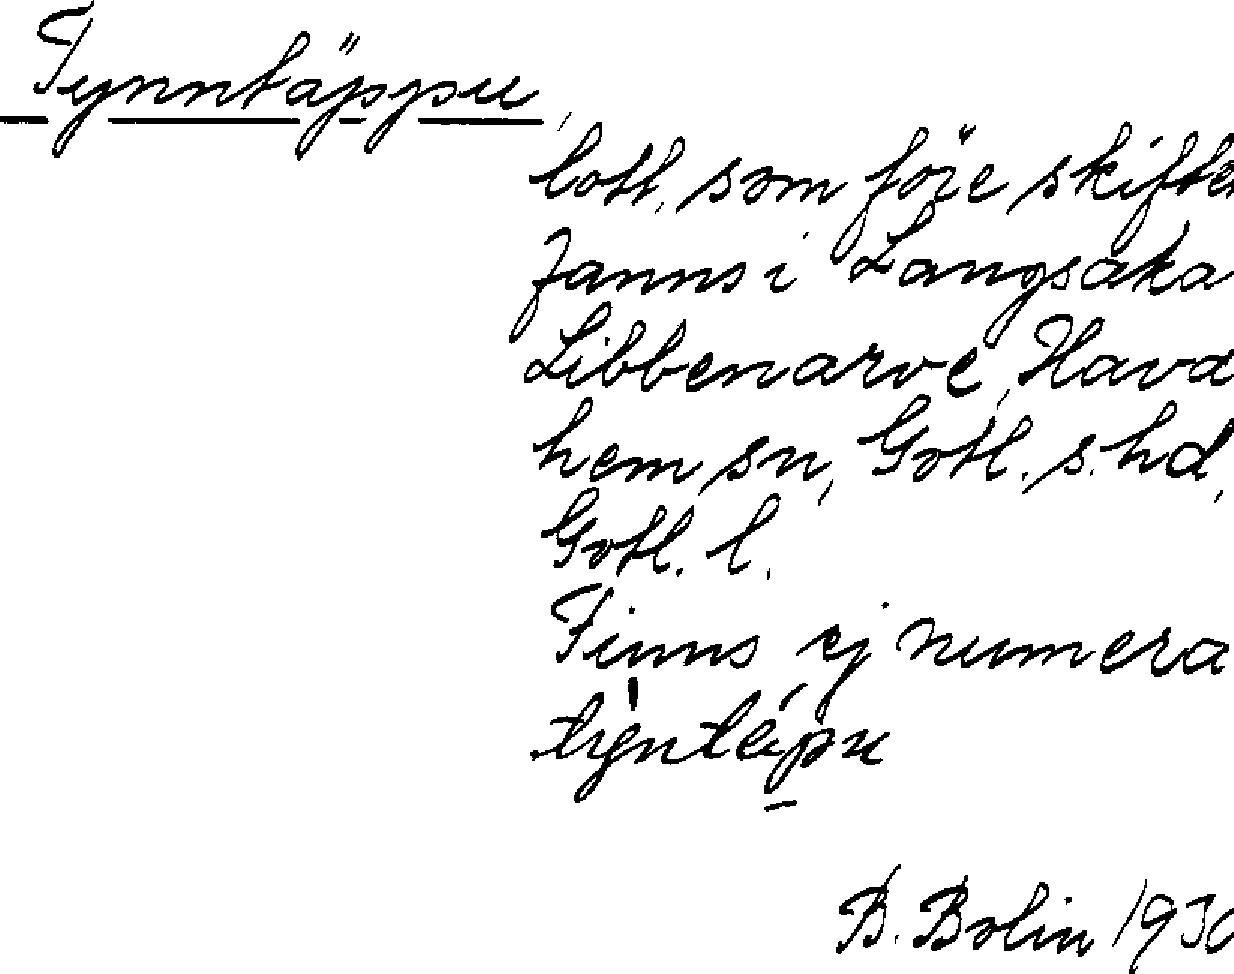 Tynntäppu,
lott, som före skifte
fanns i Langsaka
Libbenarve, Hava
hem sn, Gotl. s. hd,
Gotl. l.
Finns ej numera
tynteipu
B. Bolin 1930